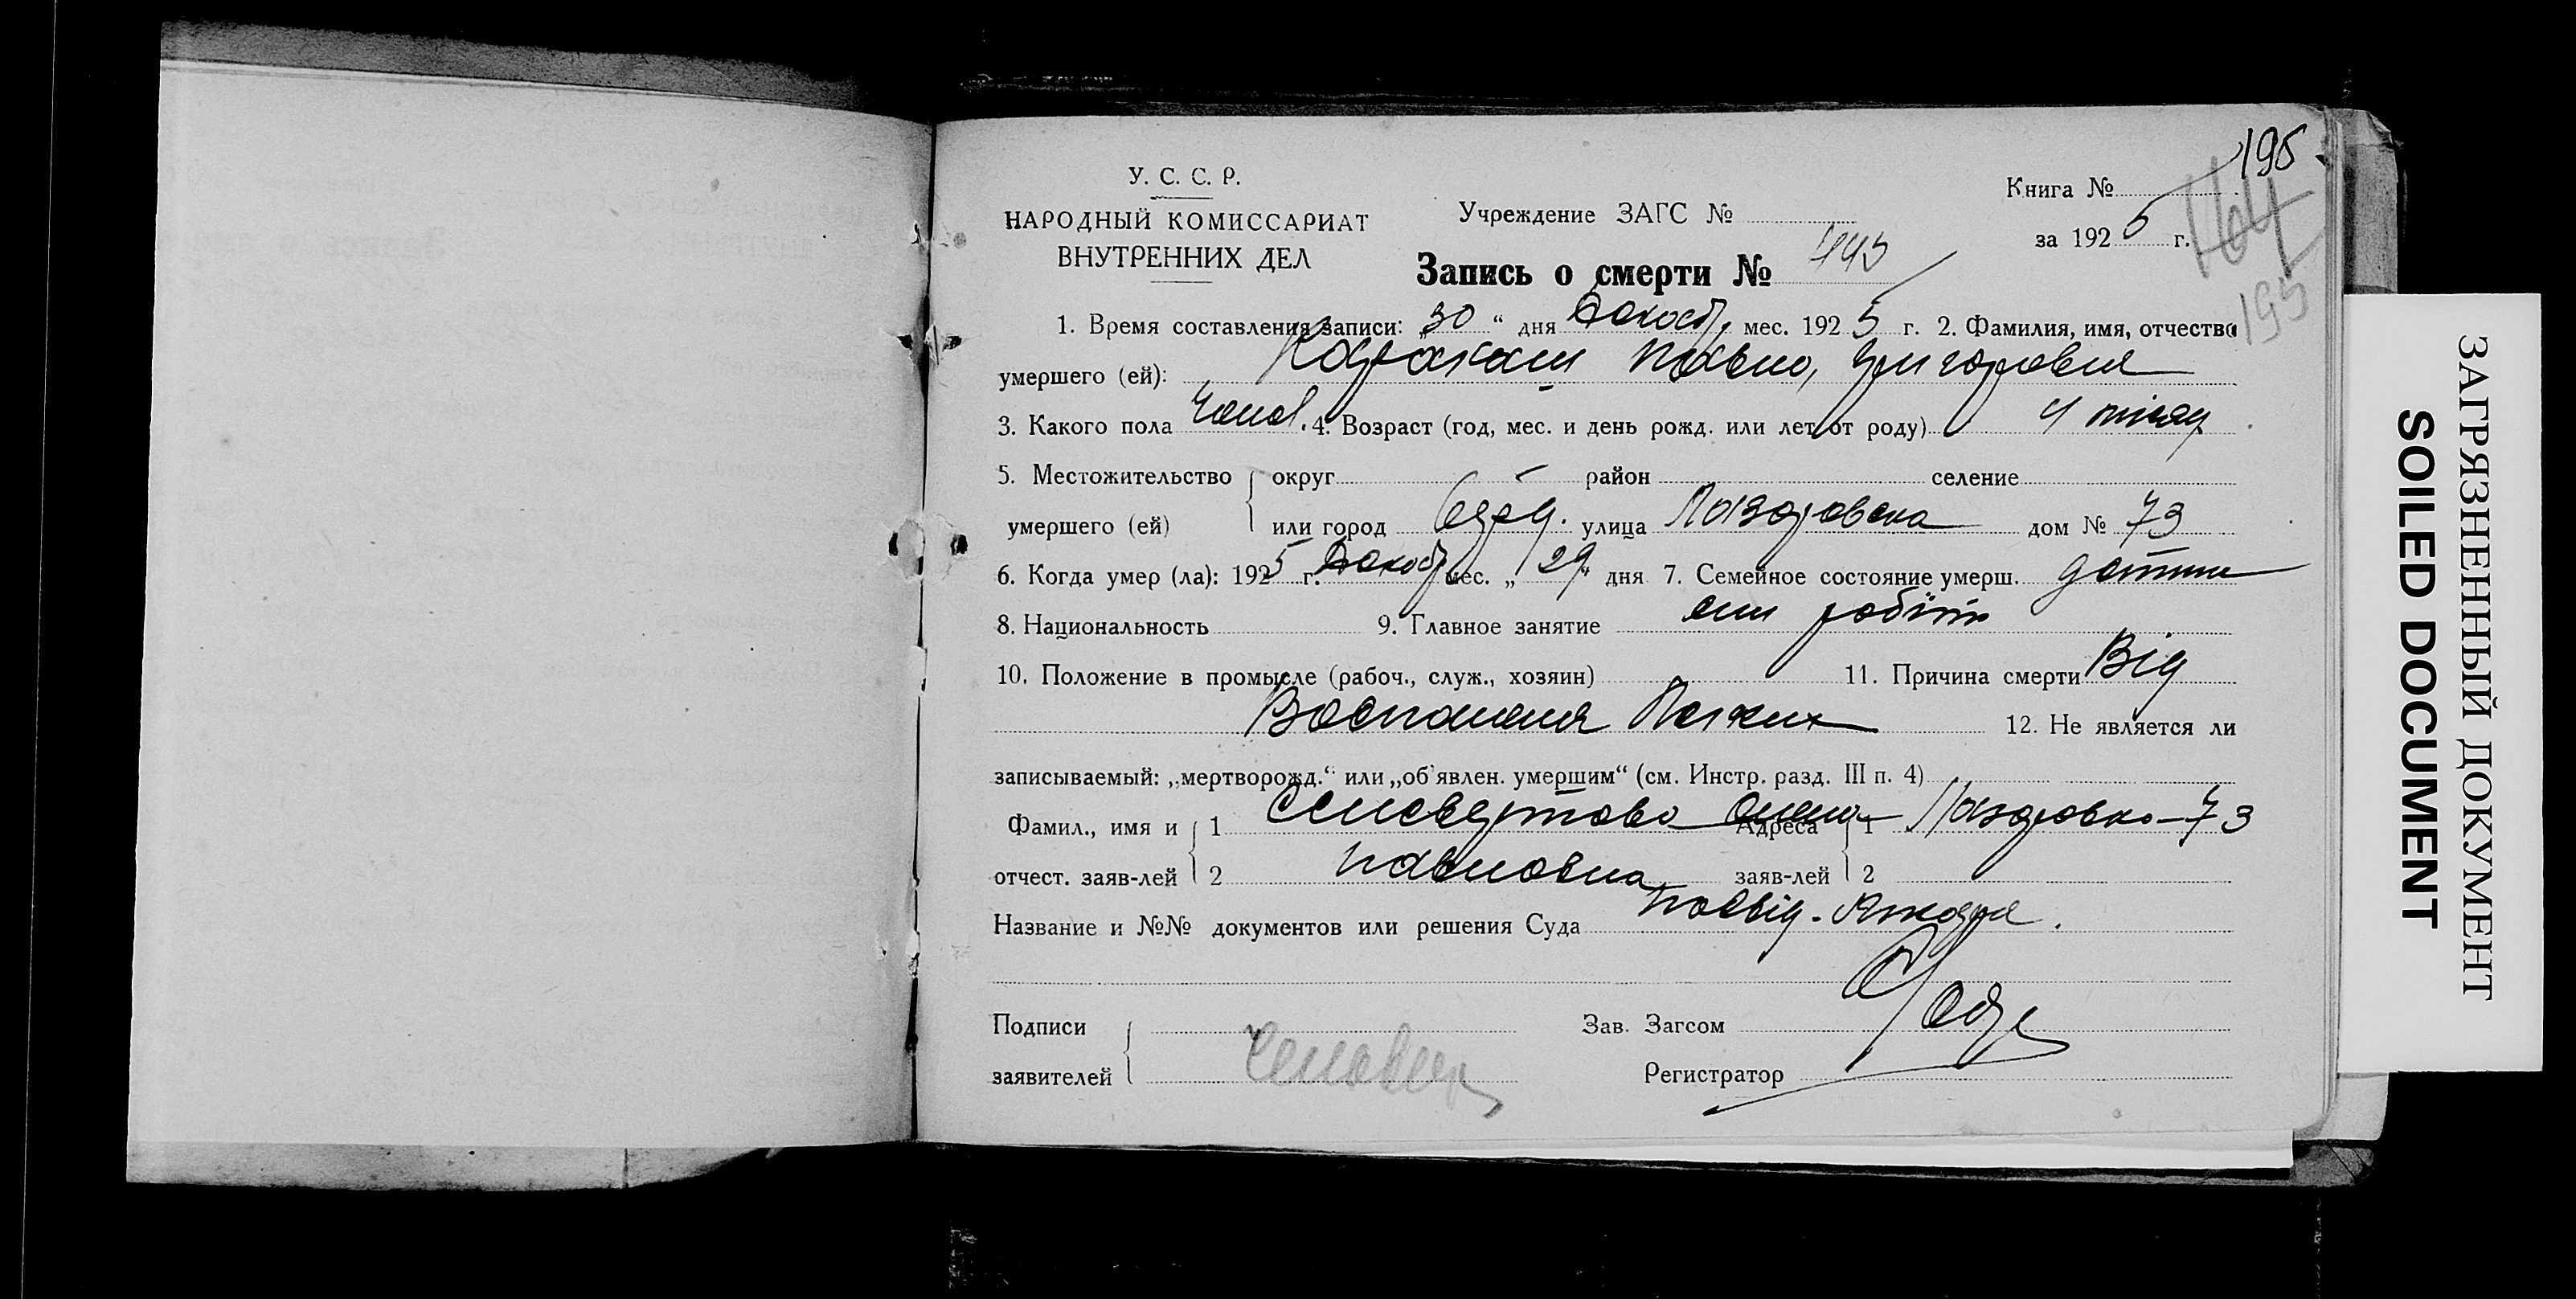 195
У. С. С. Р.
НАРОДНЫЙ КОМИССАРИАТ
ВНУТРЕННИХ ДЕЛ
Учреждение ЗАГС №
Книга №
164
за 1925 г.
195
Запись о смерти № 445
1. Время составления записи: „30“ дня Декабр. мес. 1925 г. 2. Фамилия, имя, отчество
умершего (ей): Павло, Григорович
3. Какого пола Чолов. 4. Возраст (год, мес. и день рожд. или лет от роду) 4 місяц
5. Местожительство округ район селение
умершего (ей) или город улица Лазаровска дом № 73
6. Когда умер (ла): 1925 г. Декабр мес. „29“ дня 7. Семейное состояние умерш. дотина
8. Национальность 9. Главное занятие син робітн
10. Положение в промысле (рабоч., служ., хозяин) 11. Причина смерти Від
Воспаления Легких 12. Не является ли
записываемый: „мертворожд.“ или „об'явлен. умершим“ (см. Инстр. разд. III п. 4)
Фамил., имя и 1 Адреса 1 Лазаровка-73
отчест. заяв-лей 2 Павловна заяв-лей 2
Название и №№ документов или решения Суда Посвід. Лікаря.
Подписи
заявителей
Зав. Загсом
Регистратор
ЗАГРЯЗНЕННЫЙ ДОКУМЕНТ
SOILED DOCUMENT